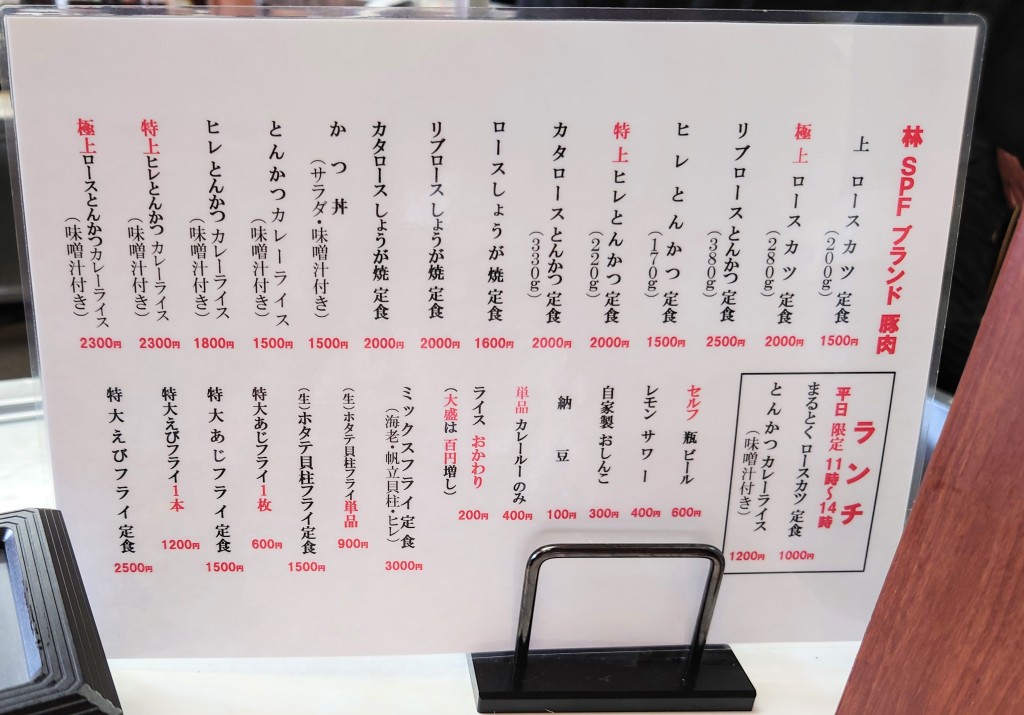 林 SPF ブランド 豚肉
上 ロースカツ 定食
(200g)
1500円
極上 ロースカツ 定食
(280g)
2000円
リブロースとんかつ 定食
(380g)
2500円
ヒレとんかつ 定食
(170g)
1500円
特上 ヒレとんかつ 定食
(220g)
2000円
カタロースとんかつ 定食
(330g)
2000円
ロースしょうが焼 定食
1600円
リブロースしょうが焼 定食
2000円
カタロースしょうが焼 定食
2000円
かつ丼
(サラダ・味噌汁付き)
1500円
とんかつカレーライス
(味噌汁付き)
1500円
ヒレとんかつ カレーライス
(味噌汁付き)
1800円
特上ヒレとんかつ カレーライス
(味噌汁付き)
2300円
極上ロースとんかつカレーライス
(味噌汁付き)
2300円
ランチ
平日 限定 11時～14時
まるとく ロースカツ 定食
1000円
とんかつ カレーライス
(味噌汁付き)
1200円
セルフ 瓶 ビール
600円
レモン サワー
400円
自家製 おしんこ
300円
納豆
100円
単品 カレールーのみ
400円
ライス おかわり
200円
(大盛は 百円増し)
ミックスフライ 定食
(海老・帆立貝柱・ヒレ)
3000円
(生)ホタテ貝柱フライ単品
900円
(生)ホタテ貝柱フライ定食
1500円
特大あじフライ1枚
600円
特大あじフライ定食
1500円
特大えびフライ1本
1200円
特大えびフライ定食
2500円